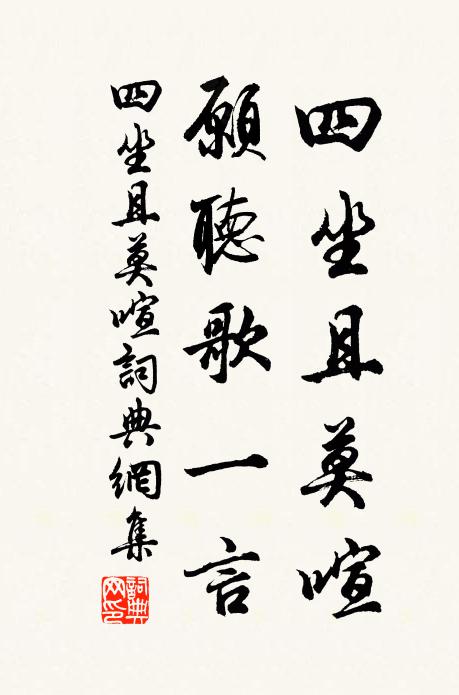 四坐且莫喧
願聽歌一言
四坐且莫喧詞典網集
詞典網印